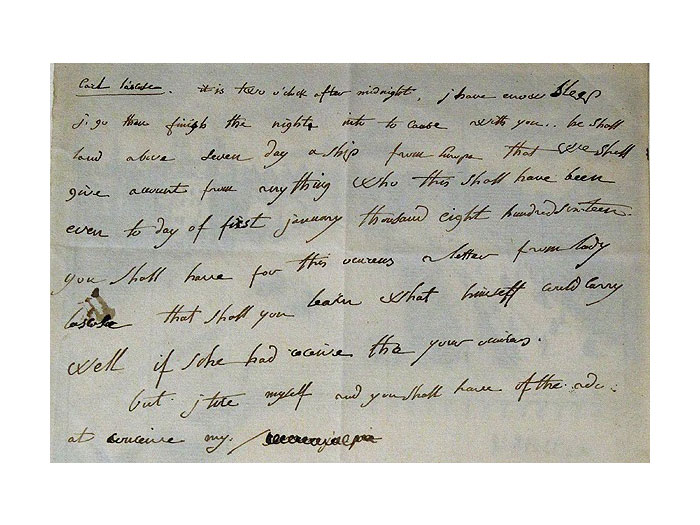 Cout lascase. it is two o'clock after midnight, j have enow sleep
j go then finish the night into to cause with you.. he shall
land above seven day a ship from Europe that we shall
give account from anything who this shall have been
even to day of first january thousand eight hundred sixteen.
you shall have for this ocurens a letter from lady
lascase that shall you learn what himself could carry
well if she had receive the your ocurens.
but j tire myself and you shall have of the ado:
at conceive my